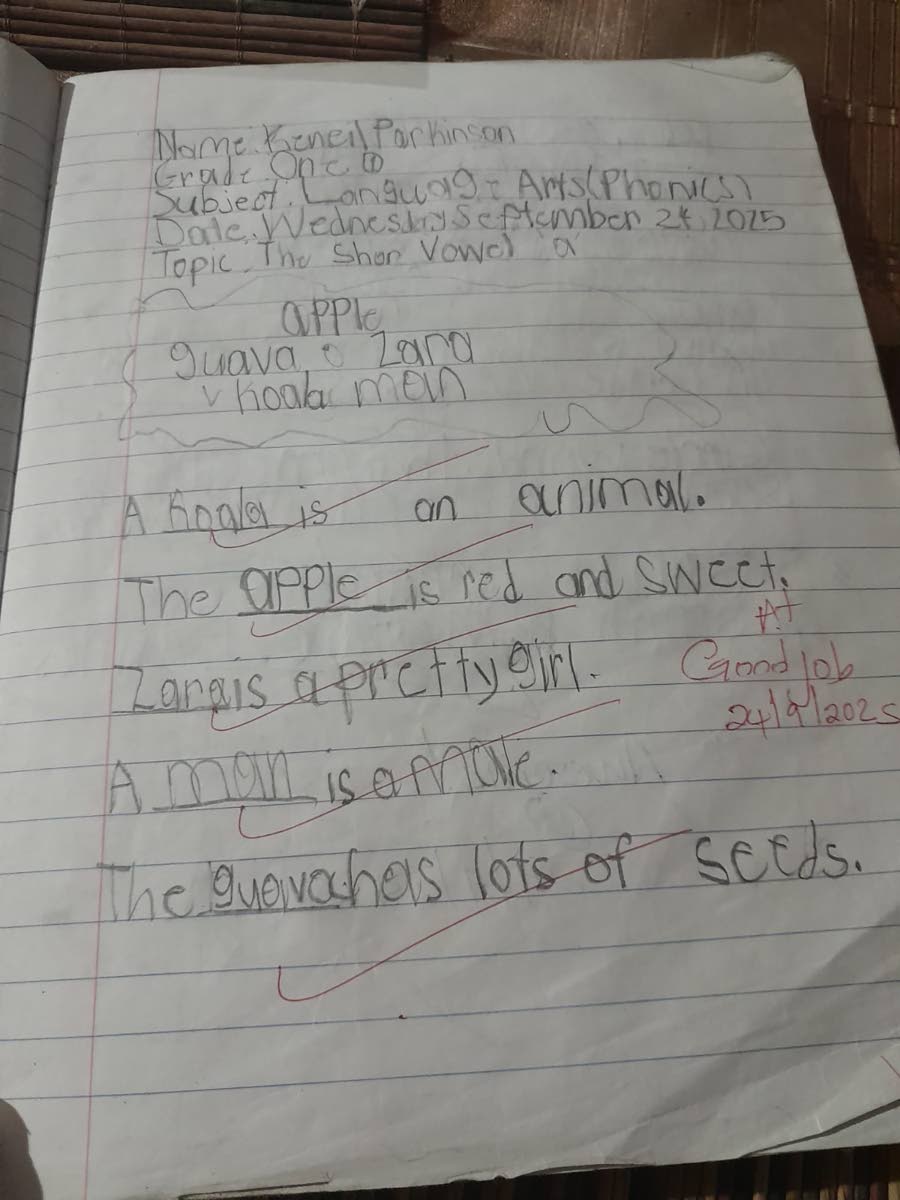 Name. Keneil Parkinson
Grade One ①
Subject. Language Arts (Phonics)
Date. Wednesday September 24, 2025
Topic. The Shor Vowel a
apple
guava Zara
koala man
A koala is an animal.
The apple is red and sweet.
A+
Zara is a pretty girl.
Good job
24/9/2025
A man is a male.
The guava has lots of seeds.